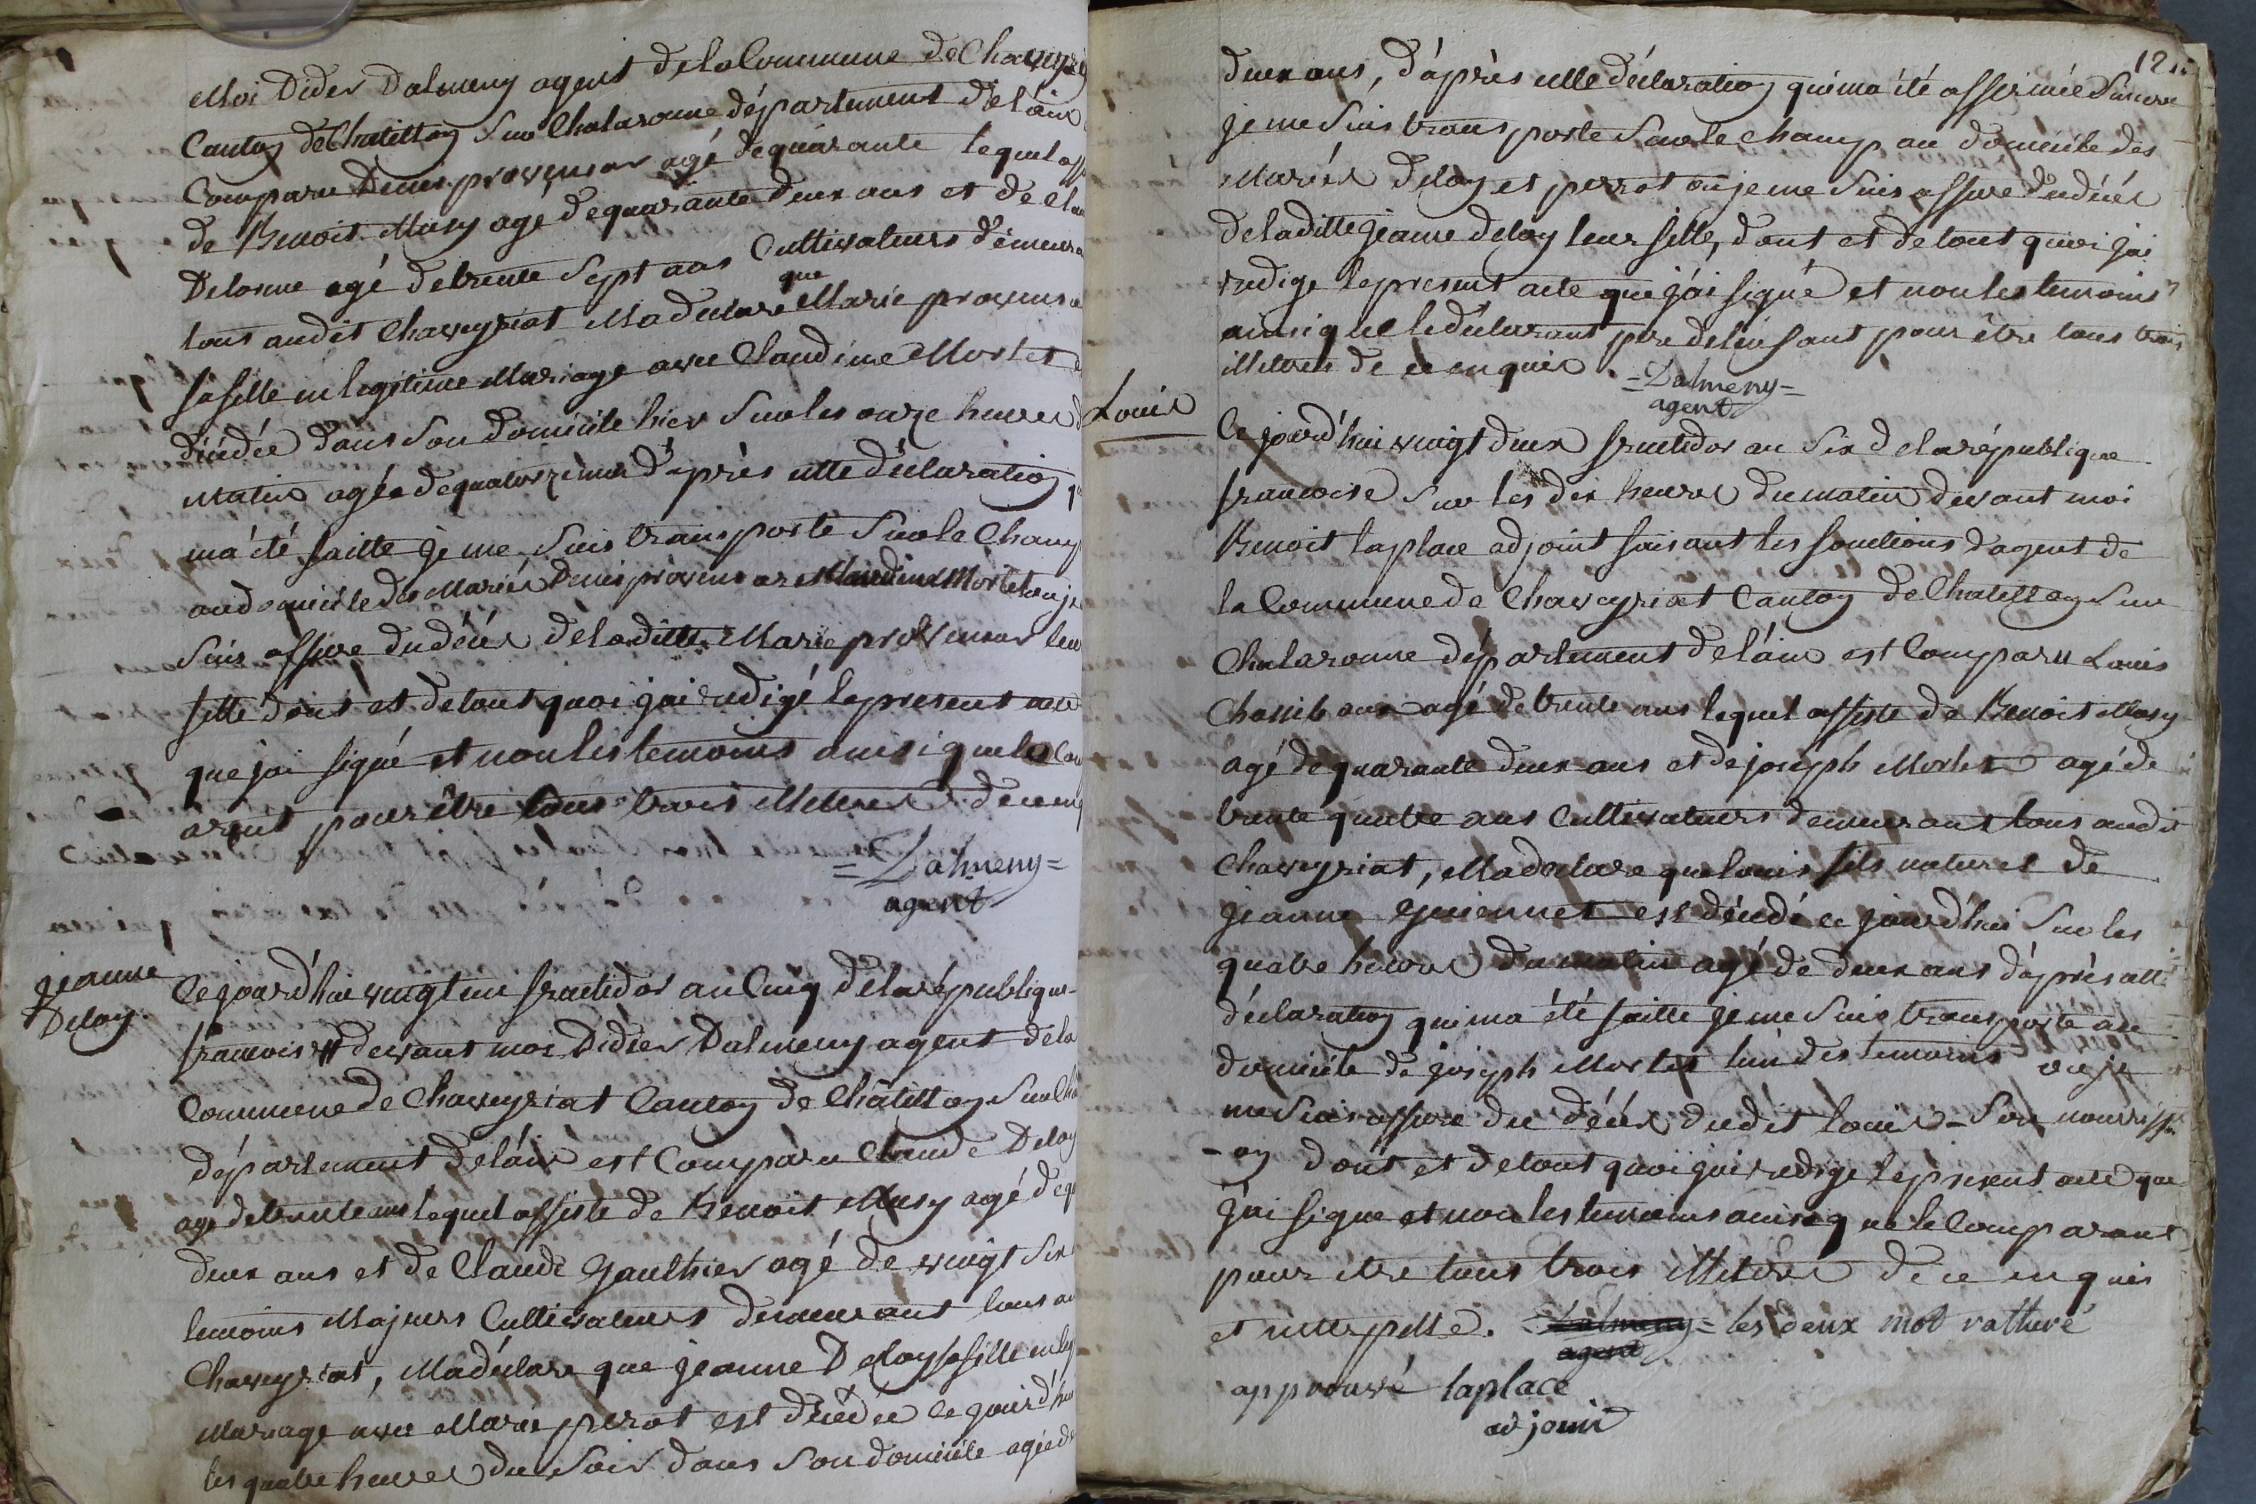 Moi Didier Dalmeny agent de la Commune de Chaveyri
Canton de Chatillon Sur Chalaronne département de l'ain
Comparu Denis provensar agé de quarante lequel ass
de Benoit Musy agé de quarante deux ans et de Clau
Delorme agé de trente Sept ans Cultivateurs démeura
tous audit Chaveyriat Ma déclaré que Marie provensa
sa fille en legitime Mariage avec Claudine Mortet e
décédée dans Son domicile hier Sur les onze heures d
Matin agée de quatorze d'après cette déclaration q
m'a été faitte je me Suis transporté Sur le Champ
au domicile des Mariés Denis provensar et Claudine Mortet ou je
Suis assuré du décés de la ditte Marie provensar leur
fille dont et de tout quoi j'ai redigé le present acte
que jai signé et non les temoins ainsi que le
arant pour être tous trois illetrés de ce enq
= Dalmeny =
agent
jeanne
Deloy
Ce jourd'hui vingt un fructidor an Cinq de la république
francoise devant moi Didier Dalmeny agent de la
Commune de Chaveyriat Canton de Châtillon Sur Cha
département de l'ain est Comparu Claude Deloy
agé de trente ans lequel assisté de Benoit Musy agé de q
deux ans et de Claude Gaulthier agé de vingt Six
temoins Majeurs Cultivateurs demeurant tous au
Chaveyriat, Ma déclaré que jeanne Deloy sa fille en leg
Mariage avec Marie perrot est décédée ce jourd'hui
les quatre heures du Soir dans Son domicile agée de
12
deux ans, d'après cette déclaration qui m'a été affirmée Sincere
je me Suis transporté Sur le champ au domicile des
Mariés Deloy et perrot ou je me Suis assuré du décés
de la ditte jeanne deloy leur fille, dont et de tout quoi j'ai
redigé le present acte que j'ai signé et non les temoins
ainsi que le déclarant pere de l'enfant pour être tous trois
illetrés de ce enquis = Dalmeny =
agent
Louis
Ce jourd'hui vingt deux fructidor an Six de la république
francoise Sur les dix heures du matin devant moi
Benoit laplace adjoint faisant les fonctions d'agent de
la Commune de Chaveyriat Canton de Chatillon Sur
Chalaronne département de l'ain est Comparu Louis
agé de trente ans lequel assisté de Benoit Musy
agé de quarante deux ans et de joseph Mortet agé de
trente quatre ans Cultivateurs demeurant tous audit
Chaveyriat, Ma déclaré que louis fils naturel de
jeanne est décédé ce jourd'hui Sur les
quatre heures du matin agé de deux ans d'après cette
déclaration qui m'a été faitte je me Suis transporté au
domicile de joseph Mortet l'un des temoins ou je
me Suis assuré du décés du dit louis Son nourriss
-on dont et de tout quoi j'ai redigé le present acte que
j'ai signé et non les temoins ainsi que le Comparant
pour etre tous trois illetrés de ce enquis
et interpellé. = Dalmeny = les deux mot ratturé
agent
approuvé laplace
adjoint